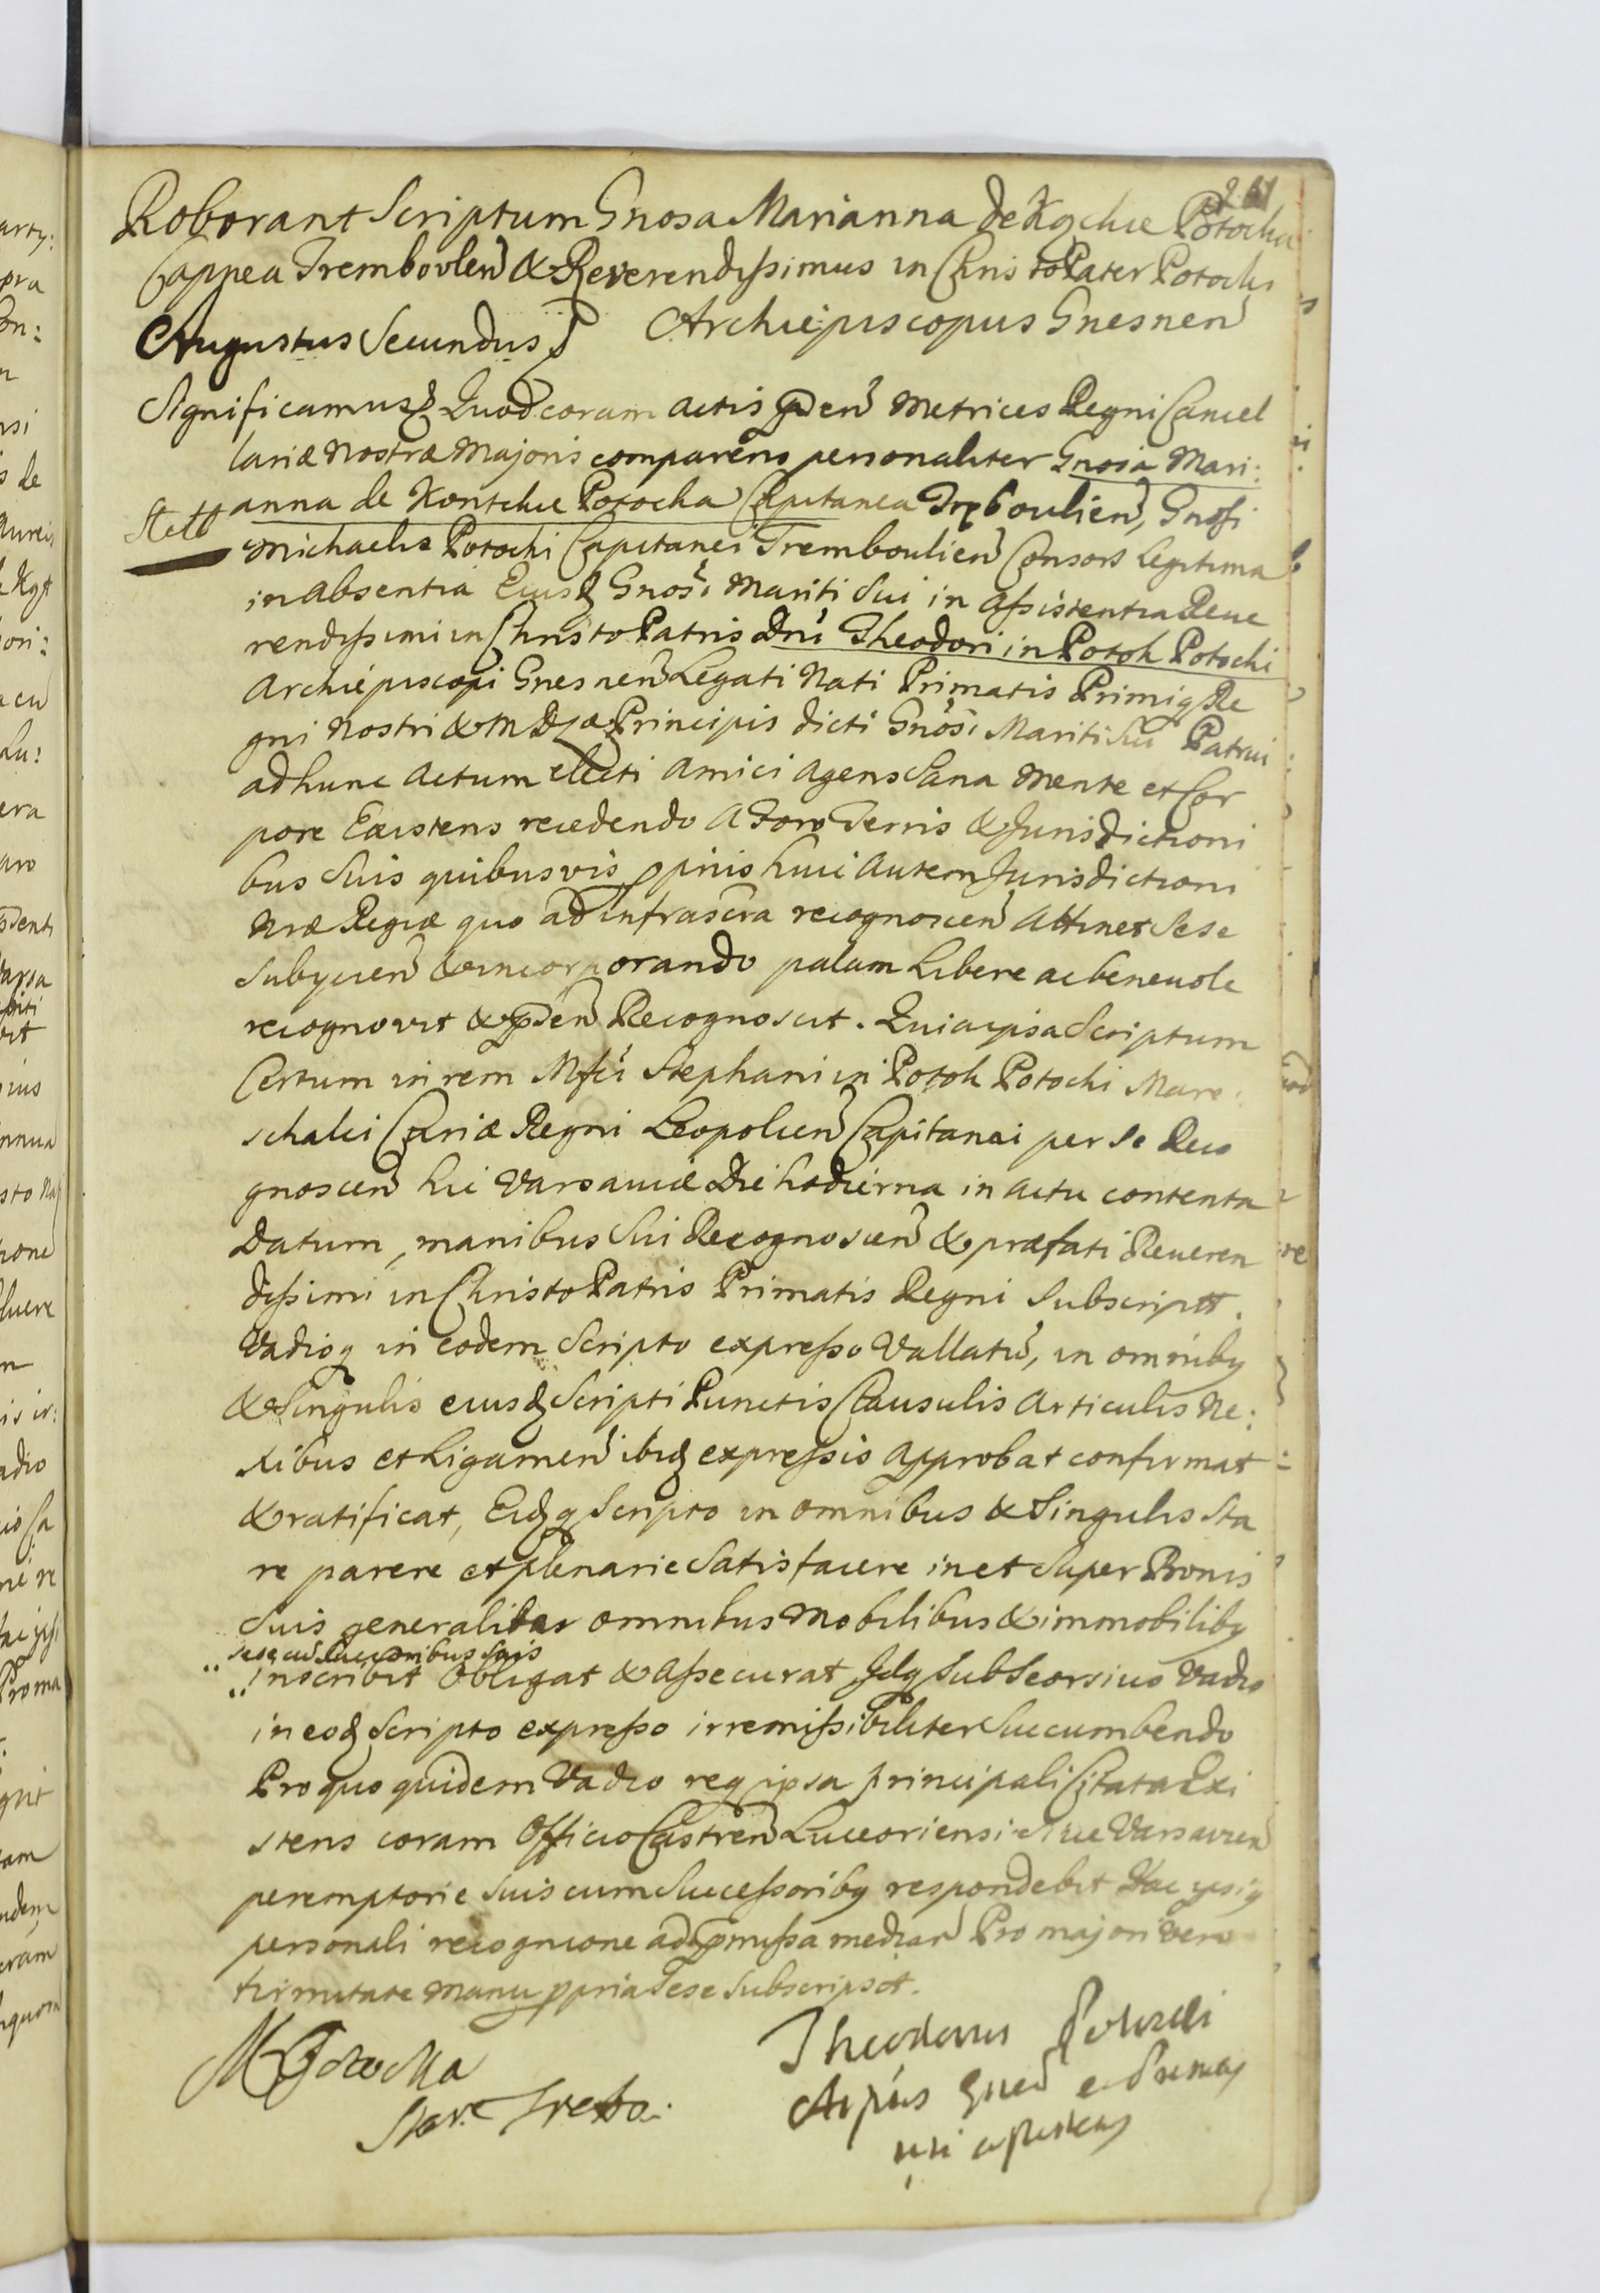 261
Roborant Scriptum Gnosa Marianna de Kąckie Potocka
Cappnea Trembovlen & Reverendissimus in Christo Pater Potocki
Archiepiscopus Gnesnen
Augustus Secundus
Significamus Quod coram actis pñden Metrices Regni Cancel
lariæ Nostræ Majoris comparens personaliter Gnosa Mari:
anna de Kontckie Potocka Capitanea Trębouliensis, Gnosi
Michaelis Potocki Capitanei Tremboulien Consors Legitima
in absentia Eiusd Gnosi Mariti Sui in assistentia Reve
rendissimi in Christo Patris Dni Theodori in Potok Potocki
Archiepiscopi Gnesnen Legati Nati Primatis Primiq Re
gni Nostri & M D L æ Principis dicti Gnosi Mariti Sui Patrui
ad hunc Actum electi Amici Agens Sana Mente et Cor
pore Existens recedendo A Foro Terris & Jurisdictioni
bus Suis quibusvis ppriis huic autem Jurisdictioni
Nræ Regiæ quo ad infrascra recognoscen Attinet Sese
Subyciend & incorporando palam Libere ac benevole
recognovit & pnden Recognoscit. Quia ipsa Scriptum
Certum in rem Mfci Stephani in Potok Potocki Mare:
schalci Curiæ Regni Leopolien Capitanei per Se Reco
gnoscen hic Varsaviæ Die hodierna in actu contenta
Datum, manibus Sui Recognoscen & præfati Reveren
dissimi in Christo Patris Primatis Regni Subscriptt.
Vadioq in eodem Scripto expresso Vallatū, in omnibq
& Singulis eiusd Scripti Punctis Clausulis Articulis Ne:
xibus et Ligamen ibid expressis Approbat confirmat
& ratificat, Eidq Scripto in omnibus & Singulis Sta
re parere et plenarie Satisfacere in et Super Bonis
Suis generaliter omnibus Mobilibus & immobilibq
seseq cū Successoribus Suis
inscribit Obligat & Assecurat Idq Sub Seorsivo Vadio
in eod Scripto expresso irremissibiliter Succumbendo
Pro quo quidem Vadio req ipsa principali Citata Exi
stens coram Officio Castren Luceoriensi sive Varsavien
peremptorie Suis cum Successoribq respondebit Hac ipsiq
personali recognicone ad pmissa median Pro majori vero
firmitate Manu ppria Sese Subscripsit.
M Potocka
Star. Trebo:
Theodorus Potocki
Arpūs Gnen et Primas
uti assistens